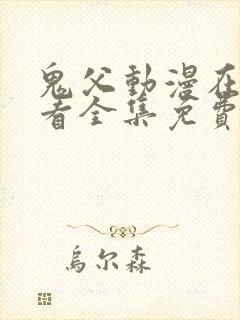 鬼父動漫在
看全集免費
烏尔森